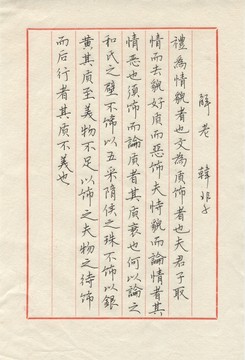 解老 韓非子
禮為情貌者也文為质饰者也夫君子取
情而去貌好质而恶饰夫恃貌而論情者其
情恶也须饰而論质者其质衰也何以論之
和氏之璧不饰以五采隋侯之珠不饰以銀
黄其质至美物不足以饰之夫物之待饰
而后行者其质不美也